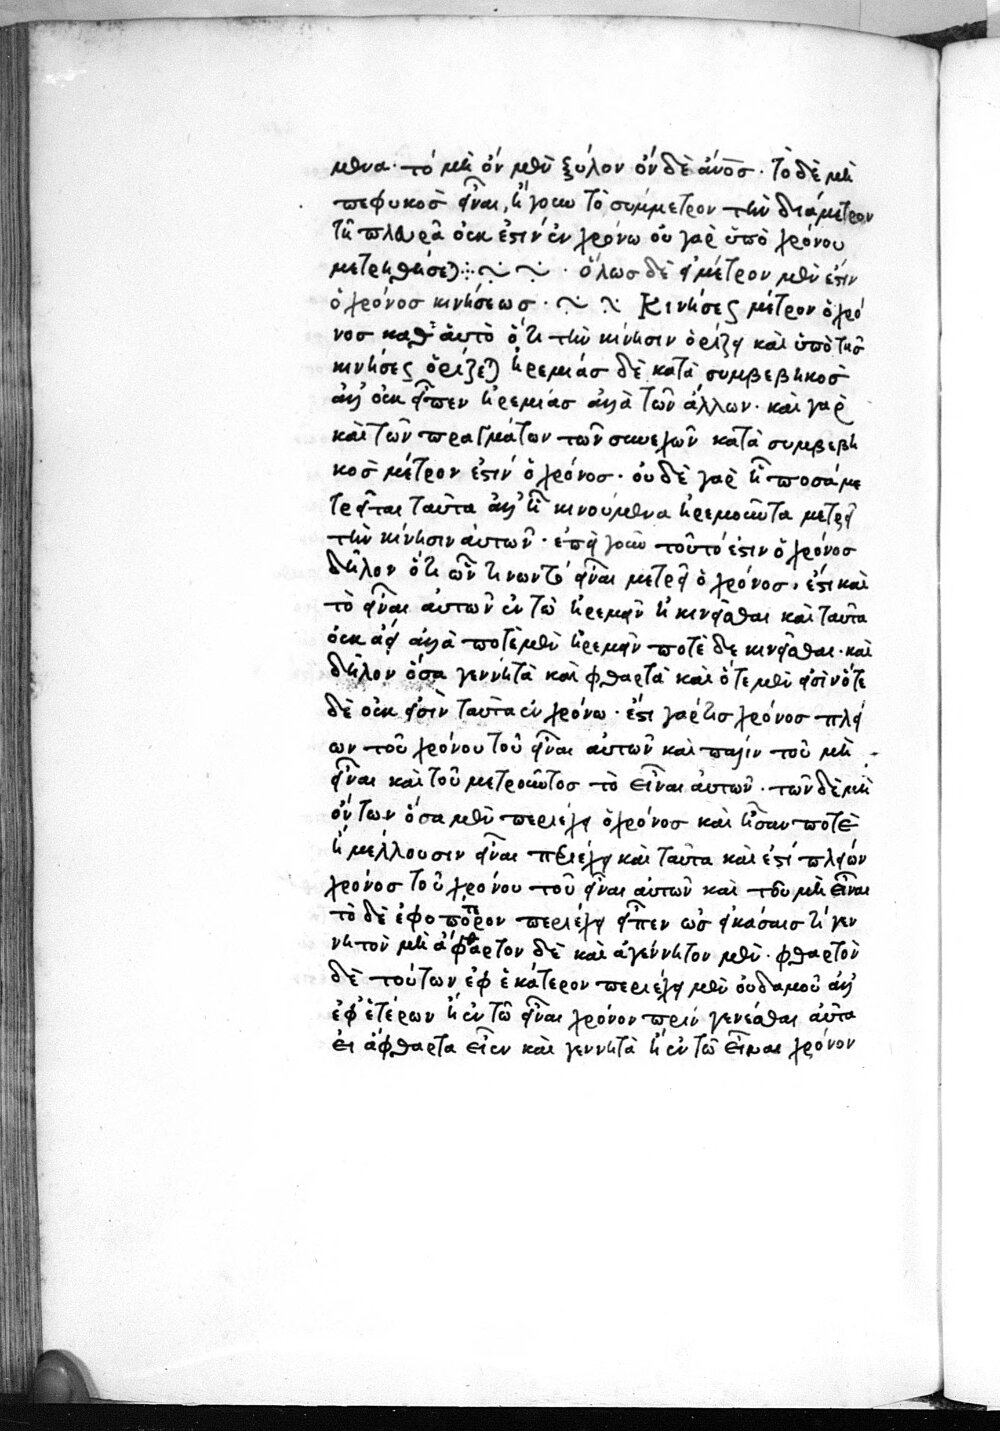 μενα· τὸ μὴ ὂν μὲν ξύλον ὂν δὲ ἄνοσ· τὸ δὲ μὴ
πεφυκὸσ εἶναι, ἤγουν τὸ σύμμετρον τὴν διάμετρον
τῆ πλευρᾶ οὐκ ἔστιν ἐν χρόνω οὐ γὰρ ὑπὸ χρόνου
μετρηθήσεται ⁘ ~ ~ · ὅλωσ δὲ εἰ μέτρον μέν ἐστιν
ὁ χρόνοσ κινήσεωσ · ~ ~ Κινήσεως μέτρον ὁ χρό
νοσ καθ' ἁυτὸ ὅτι τὴν κίνησιν ὁρίζει καὶ ὑπὸ τῆσ
κινήσεως ὁρίζεται ἠρεμίασ δὲ κατὰ συμβεβηκὸσ
ἀλλ' οὐκ εἶπεν ἠρεμίασ ἀλλὰ τῶν ἄλλων· καὶ γὰρ
καὶ τῶν πραγμάτων τῶν συνεχῶν κατὰ συμβεβη
κὸσ μέτρον ἐστὶν ὁ χρόνοσ· οὐδὲ γὰρ ἧ ποσὰ με
τρεῖται ταῦτα ἀλλ' ἧ κινούμενα ἠρεμοῦντα μετρεῖ
τὴν κίνησιν αὐτῶν· ἐπεὶ γοῦν τοῦτό ἐστιν ὁ χρόνοσ
δῆλον ὅτι ὧν τινων τὸ εἶναι μετρεῖ ὁ χρόνοσ, ἔστι καὶ
τὸ εἶναι αὐτῶν ἐν τῶ ἠρεμεῖν ἢ κινεῖσθαι καὶ ταῦτα
οὐκ ἀεὶ ἀλλὰ ποτὲ μὲν ἠρεμεῖν ποτὲ δὲ κινεῖσθαι· καὶ
δῆλον ὅσα γεννητὰ καὶ φθαρτὰ καὶ ὅτε μὲν εἰσὶν ὅτε
δὲ οὐκ εἰσὶν ταῦτα ἐν χρόνω· ἔστι γάρ τισ χρόνοσ πλεί
ων τοῦ χρόνου τοῦ εἶναι αὐτῶν καὶ πάλιν τοῦ μὴ
εἶναι καὶ τοῦ μετροῦντοσ τὸ εἶναι αὐτῶν· τῶν δὲ μὴ
ὄντων ὅσα μὲν περιέχει ὁ χρόνοσ καὶ ἦσαν ποτὲ
ἢ μέλλουσιν εἶναι περιέχει καὶ ταῦτα καὶ ἐστὶ πλείων
χρόνοσ τοῦ χρόνου τοῦ εἶναι αὐτῶν καὶ τοῦ μὴ εἶναι
τὸ δὲ ἐφ ὁπότερον περιέχει εἶπεν ὡσ εἰκάσαισ τί γεν
νητὸν μὴ ἄφθαρτον δὲ καὶ ἀγέννητον μὲν· φθαρτὸν
δὲ τούτων ἐφ ἑκάτερον περιέχει μὲν οὐδαμοῦ ἀλλ'
ἐφ' ἑτέρων ἢ ἐν τῶ εἶναι χρόνον πρὶν γενέσθαι αὐτὰ
εἰ ἄφθαρτα εἶεν καὶ γεννητὰ ἢ ἐν τῶ εἶναι χρόνον